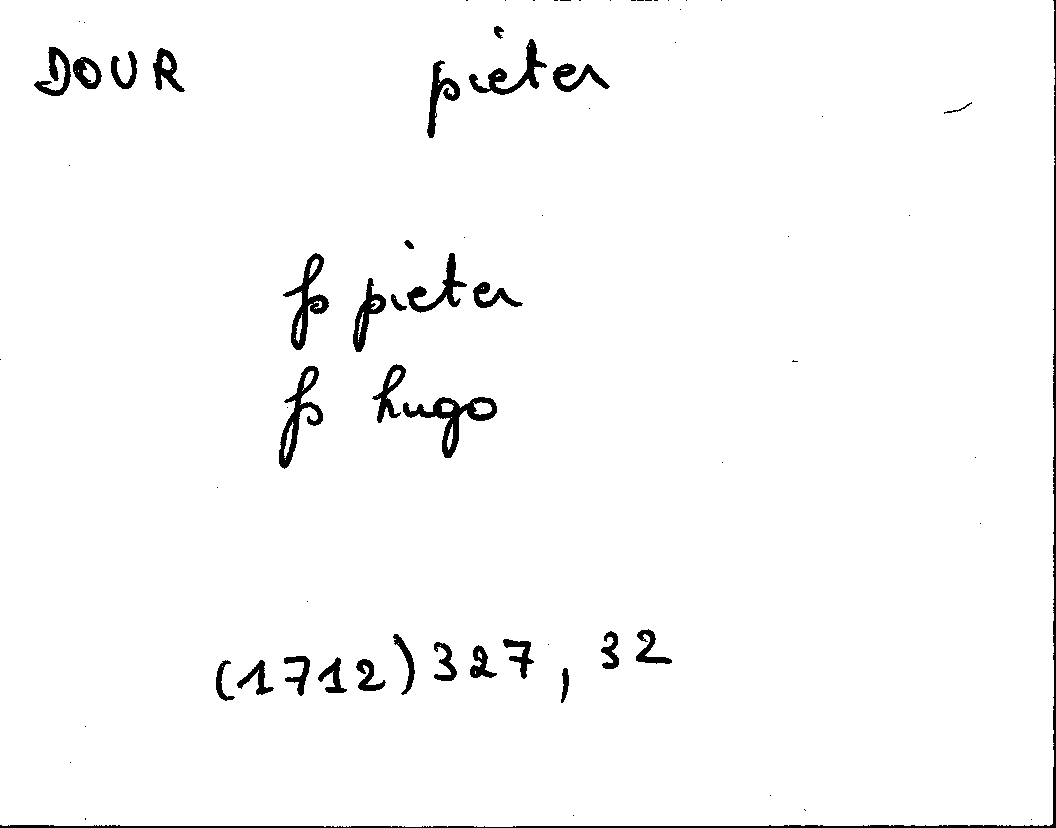 DOUR pieter
fs pieter
fs hugo
(1712) 327, 32